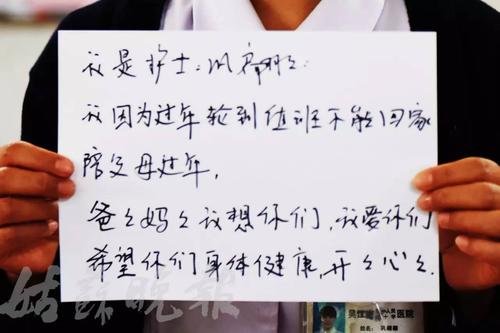 我是护士：
我因为过年轮到值班不能回家
陪父母过年，
爸々妈々我想你们，我爱你们
希望你们身体健康，开々心々.
姑苏晚报
医院
姓名：